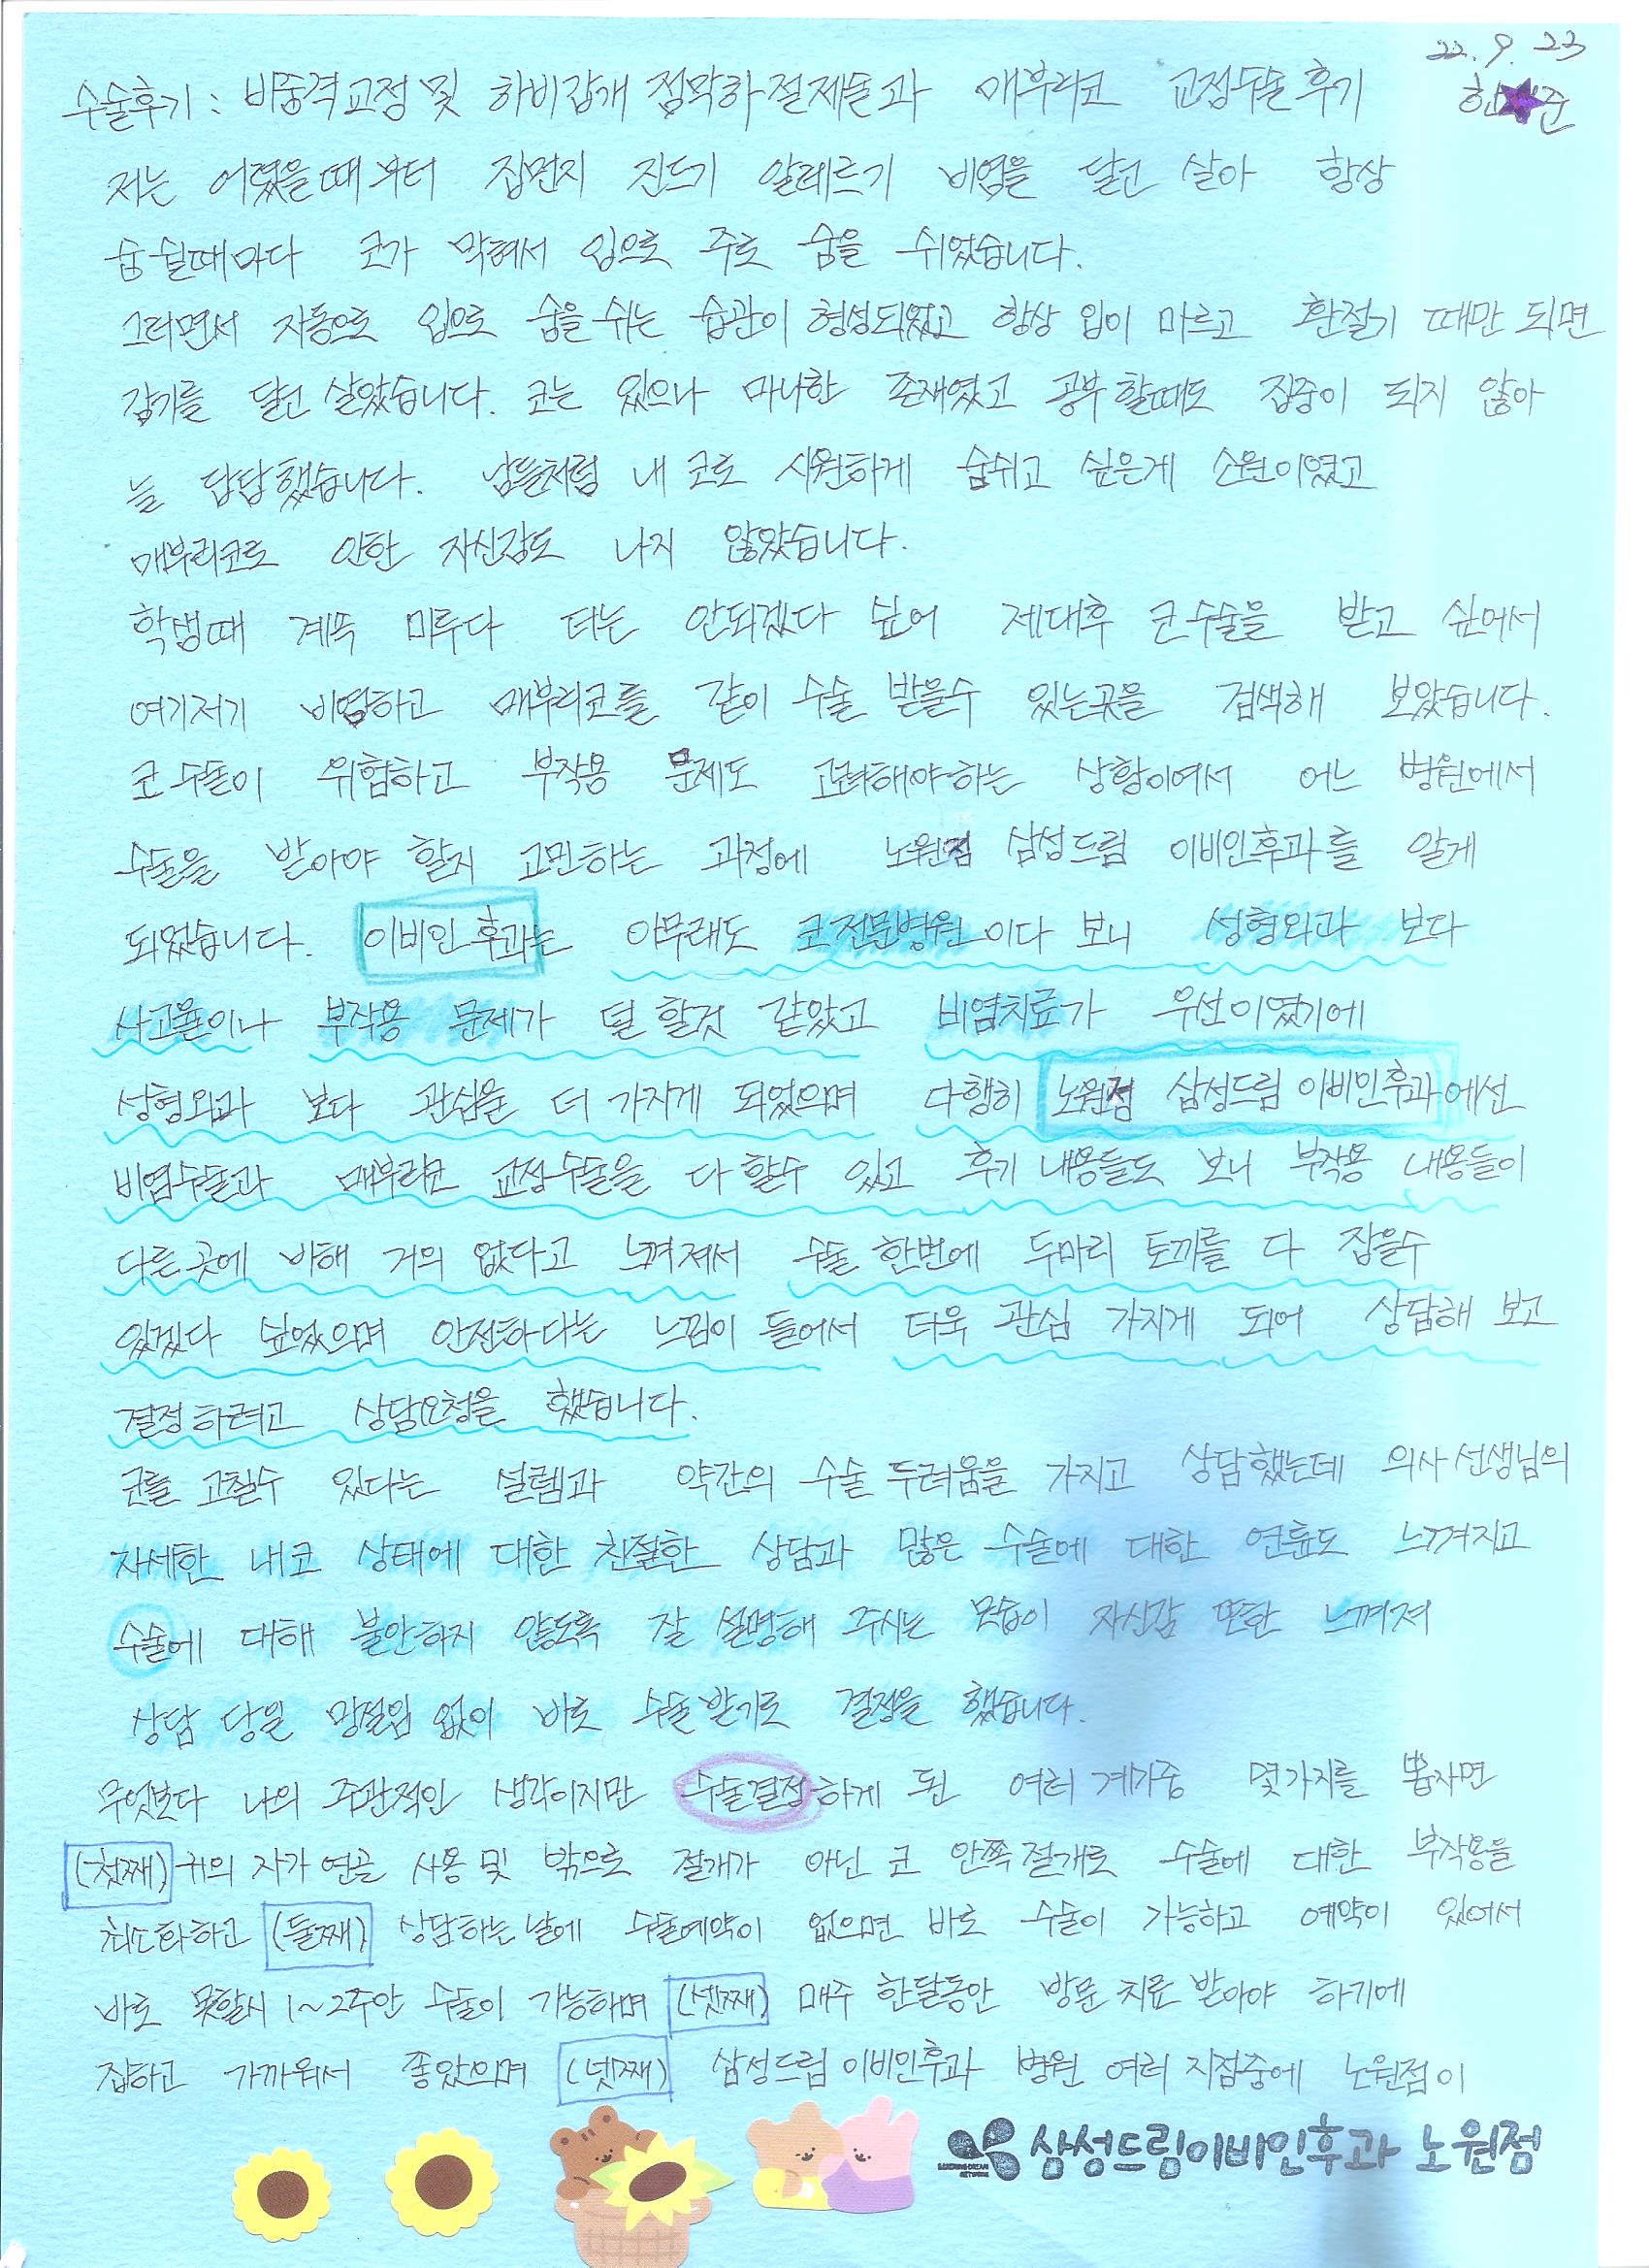 22. 9. 23
수술후기 : 비중격교정 및 하비갑개 점막하 절제술과 매부리코 교정수술 후기 한★준
저는 어렸을때부터 집먼지 진드기 알레르기 비염을 달고 살아 항상
숨쉴때마다 코가 막혀서 입으로 주로 숨을 쉬었습니다.
그러면서 자동으로 입으로 숨을 쉬는 습관이 형성되었고 항상 입이 마르고 환절기 때만 되면
감기를 달고 살았습니다. 코는 있으나 마나한 존재였고 공부할때도 집중이 되지 않아
늘 답답했습니다. 남들처럼 내 코로 시원하게 숨쉬고 싶은게 소원이였고
매부리코로 인한 자신감도 나지 않았습니다.
학생때 계속 미루다 더는 안되겠다 싶어 제대후 코수술을 받고 싶어서
여기저기 비염하고 매부리코를 같이 수술 받을수 있는곳을 검색해 보았습니다.
코 수술이 위험하고 부작용 문제도 고려해야하는 상황이여서 어느 병원에서
수술을 받아야 할지 고민하는 과정에 노원점 삼성드림 이비인후과를 알게
되었습니다. 이비인후과는 아무래도 코전문병원이다 보니 성형외과 보다
사고율이나 부작용 문제가 덜 할것 같았고 비염치료가 우선이였기에
성형외과 보다 관심을 더 가지게 되었으며 다행히 노원점 삼성드림 이비인후과에선
비염수술과 매부리코 교정수술을 다 할수 있고 후기 내용들도 보니 부작용 내용들이
다른곳에 비해 거의 없다고 느껴져서 수술 한번에 두마리 토끼를 다 잡을수
있겠다 싶었으며 안전하다는 느낌이 들어서 더욱 관심 가지게 되어 상담해 보고
결정하려고 상담요청을 했습니다.
코를 고칠수 있다는 설렘과 약간의 수술 두려움을 가지고 상담했는데 의사선생님의
자세한 내코 상태에 대한 친절한 상담과 많은 수술에 대한 연륜도 느껴지고
수술에 대해 불안하지 않도록 잘 설명해 주시는 모습이 자신감 또한 느껴져
상담 당일 망설임 없이 바로 수술받기로 결정을 했습니다.
무엇보다 나의 주관적인 생각이지만 수술결정하게 된 여러 계기중 몇가지를 뽑자면
(첫째) 귀의 자가 연골 사용 및 밖으로 절개가 아닌 코 안쪽절개로 수술에 대한 부작용을
최소화하고 (둘째) 상담하는날에 수술예약이 없으면 바로 수술이 가능하고 예약이 있어서
바로 못할시 1~2주안 수술이 가능하며 (셋째) 매주 한달동안 방문 치료 받아야 하기에
집하고 가까워서 좋았으며 (넷째) 삼성드림 이비인후과 병원 여러 지점중에 노원점이
삼성드림이비인후과 노원점